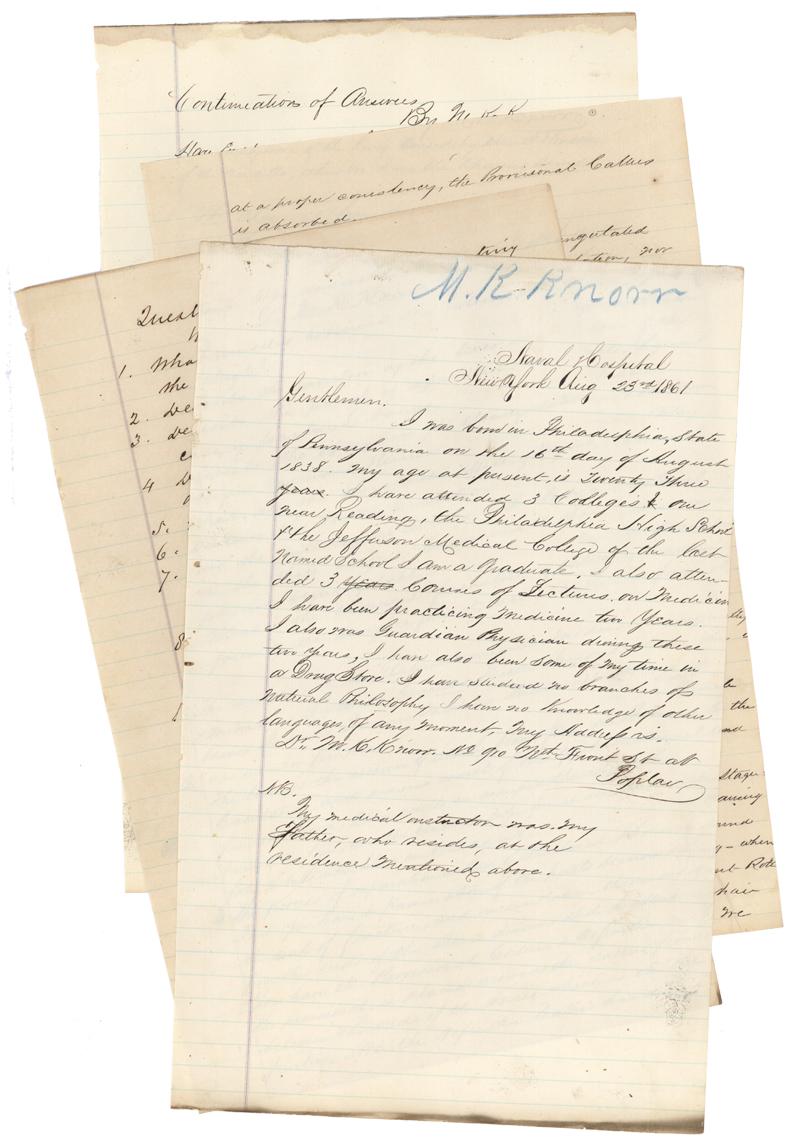 Continuations of Answers
By M. K. K
at a proper consistency, the Provisional Callus
is absorbed.
tiny
ngulated
tation, nor
M. K. Knorr
Naval Hospital
New York Aug 23rd 1861
Gentlemen.
I was born in Philadelphia, State
of Pennsylvania on the 16th day of August
1838. My age at present, is Twenty Three
years. I have attended 3 Colleges one
near Reading, the Philadelphia High School
& the Jefferson Medical College of the last
Named School I am a graduate. I also atten-
ded 3 years Courses of Lectures. on Medicin
I have been practicing Medicine two Years.
I also was Guardian Physician during these
two Years, I have also been some of my time in
a Drug Store. I have studied no branches of
Natural Philosophy I have no Knowledge of other
languages, of any moment, My Address is.
Dr. M. K. Knorr. No 910 Nth Front St ab
Poplar
NB.
My medical instructor was my
father, who resides, at the
residence Mentioned above.
Quest
1. Wha
the
2. De
3. De
c
4 D
5.
6.
7.
8
1
the
Stage
and
y - when
Rote
hair
we